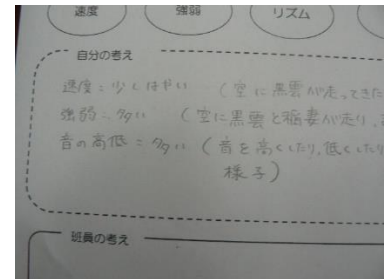 速度
強弱
リズム
自分の考え
速度：少しはやい （空に黒雲が走ってきた
強弱：多い （空に黒雲と稲妻が走り、
音の高低：多い（音を高くしたり、低くしたり
様子）
班員の考え